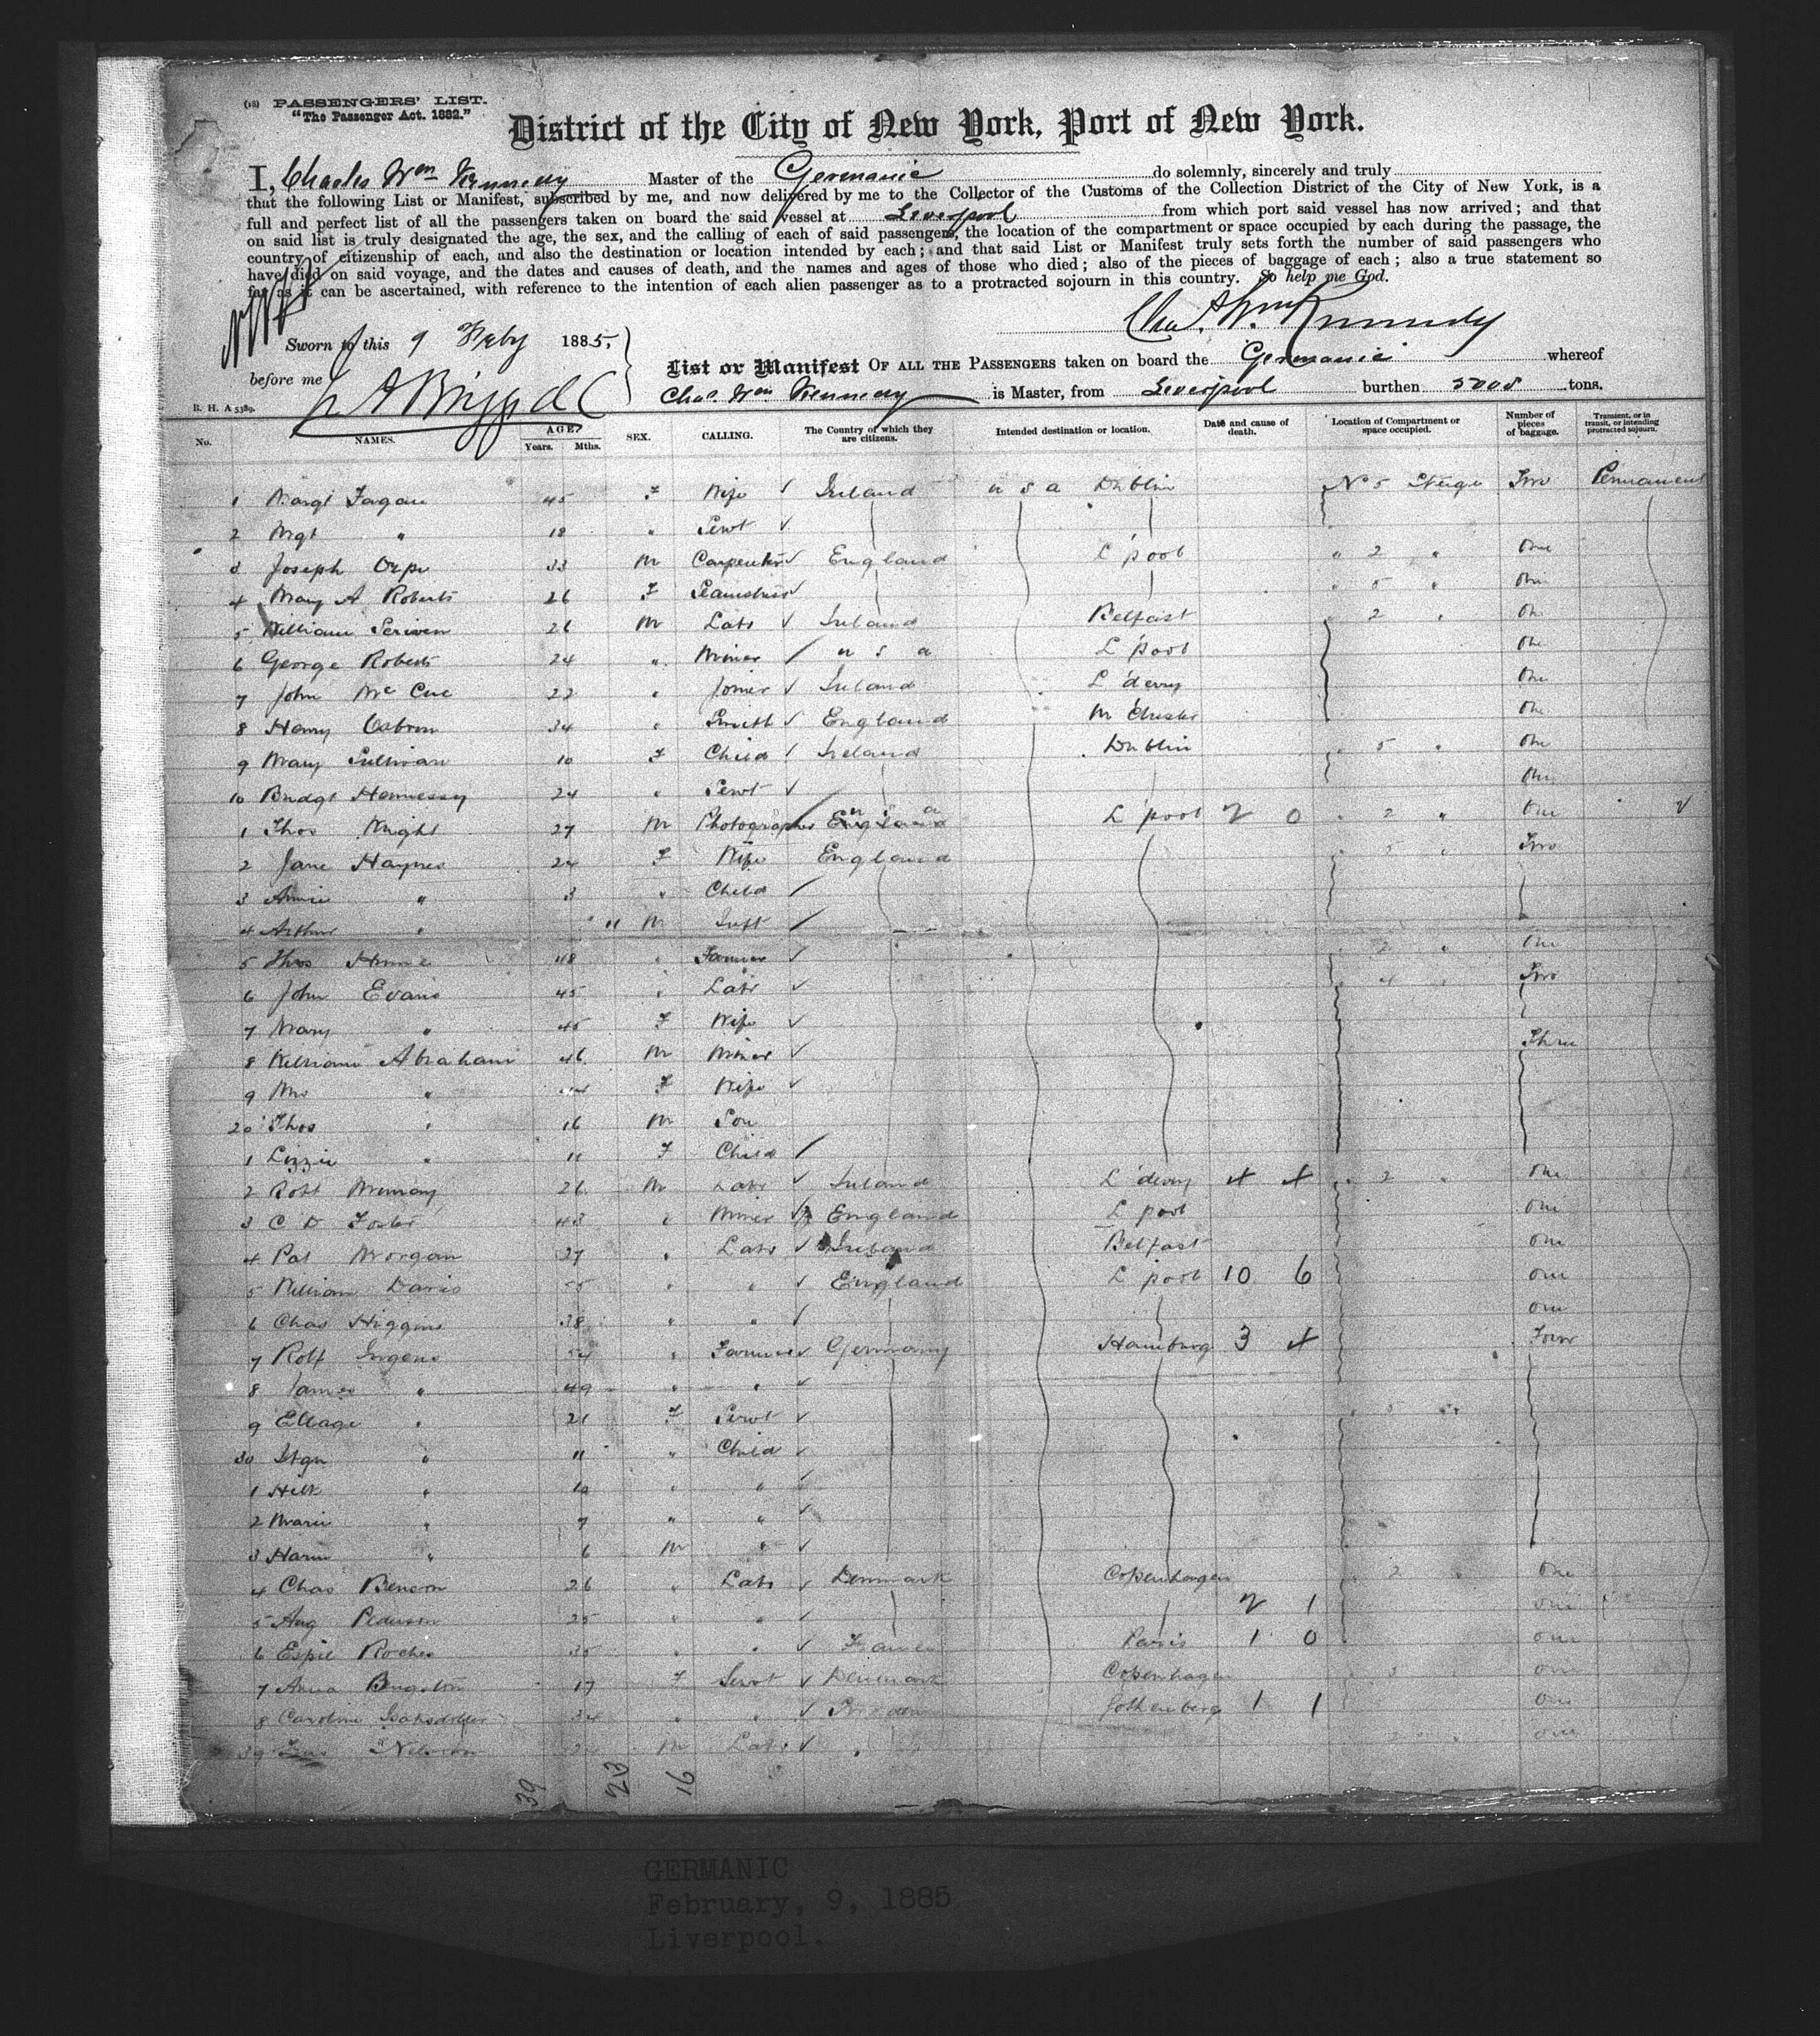 (18) PASSENGERS' LIST.
"The Passenger Act. 1882."
District of the City of New York, Port of New York.
I, Charles Wm Kennedy Master of the Germanic do solemnly, sincerely and truly
that the following List or Manifest, subscribed by me, and now delivered by me to the Collector of the Customs of the Collection District of the City of New York, is a
full and perfect list of all the passengers taken on board the said vessel at Liverpool from which port said vessel has now arrived; and that
on said list is truly designated the age, the sex, and the calling of each of said passengers, the location of the compartment or space occupied by each during the passage, the
country of citizenship of each, and also the destination or location intended by each; and that said List or Manifest truly sets forth the number of said passengers who
have died on said voyage, and the dates and causes of death, and the names and ages of those who died; also of the pieces of baggage of each; also a true statement so
far as it can be ascertained, with reference to the intention of each alien passenger as to a protracted sojourn in this country. So help me God.
Chas. Wm Kennedy
Sworn to this 9 Feby 1885,
before me
List or Manifest OF ALL THE PASSENGERS taken on board the Germanic whereof
Chas. Wm Kennedy is Master, from Liverpool burthen 5008 tons.
R. H. A 5389.
No. NAMES. AGE. Years. Mths. SEX. CALLING. The Country of which they are citizens. Intended destination or location. Date and cause of death. Location of Compartment or space occupied. Number of pieces of baggage. Transient, or in transit, or intending protracted sojourn.
1 Margt Fagan 45 F Wife Ireland U S A Dublin No 5 Steige Two Permanent
2 Mgt " 18 " Servt
3 Joseph 33 M Carpenter England L'pool " 2 " One
4 Mary A Roberts 26 F Seamstress " 5 " One
5 William Scriven 26 M Labr Ireland Belfast " 2 " One
6 George Roberts 24 " Miner U S A L'pool One
7 John McCue 22 " Joiner Ireland L'derry One
8 Henry Osborn 34 " Smith England M'Chester One
9 Mary Sullivan 10 F Child Ireland Dublin " 5 " One
10 Bridgt Hennessy 24 " Servt One
1 Thos Knight 27 M Photographer England U S A L'pool 2 0 " 2 " One
2 Jane Haynes 24 F Wife England " 5 " Two
3 Annie " 3 " Child
4 Arthur " 11 M Inft
5 Thos 48 " Farmer " 2 " One
6 John Evans 45 " Labr " 4 " Two
7 Mary " 45 F Wife
8 William Abraham 46 M Miner Three
9 Mrs " 44 F Wife
20 Thos " 16 M Son
1 Lizzie " 11 F Child
2 Robt Murray 26 M Labr Ireland L'derry " 2 " One
3 C D Foster 43 " Miner England L'pool One
4 Pat Morgan 27 " Labr Ireland Belfast One
5 William Davis 55 " " England L'pool 10 6 One
6 Chas Higgins 38 " " One
7 Rolf 54 " Farmer Germany Hamburg 3 Four
8 James " 49 " "
9 " 21 F Servt " 5 "
30 " 11 " Child
1 " 10 " "
2 Marie " 7 " "
3 Harm " 6 M "
4 Chas Benson 26 " Labr Denmark Copenhagen " 2 " One
5 Aug Pederson 25 " " 2 1 One
6 Roches 35 " " France Paris 1 0 One
7 Anna 17 F Servt Denmark Copenhagen " 5 One
8 Caroline 34 " " Sweden Gothenberg 1 1 One
39 Nilsson M Labr " 2 " One
39 23 16
GERMANIC
February, 9, 1885
Liverpool.